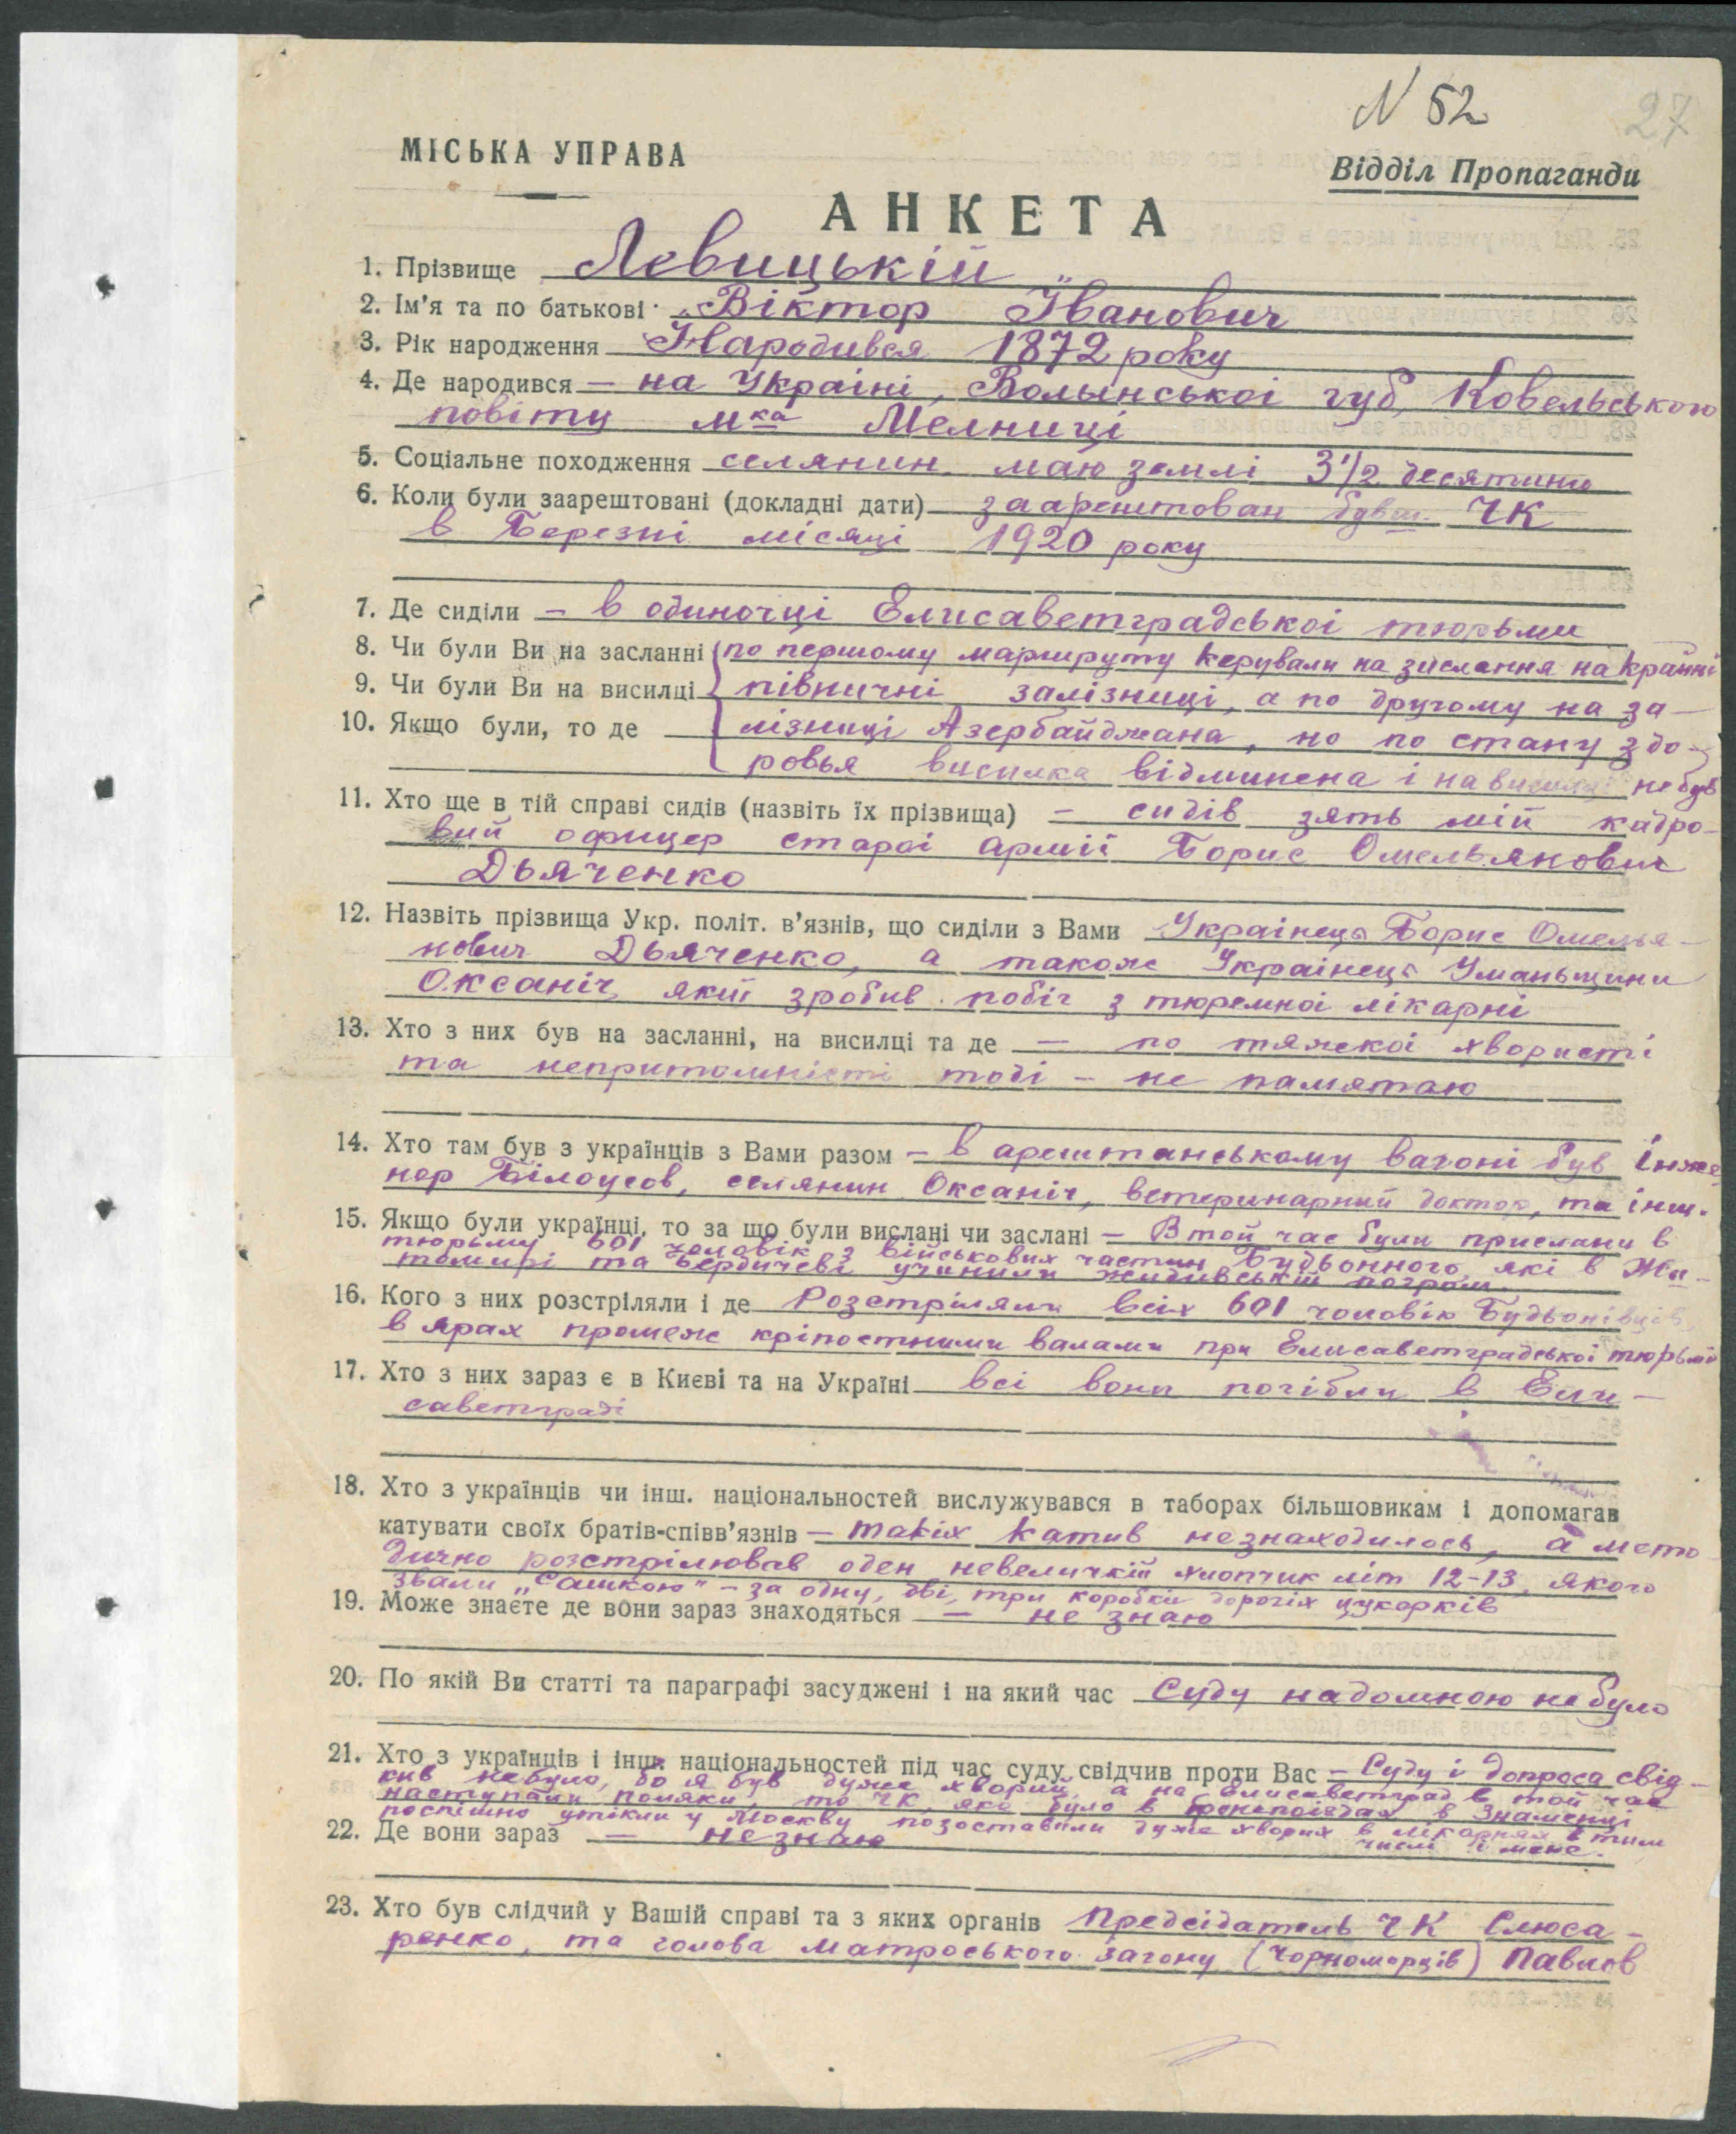 N 52
27
МІСЬКА УПРАВА
Відділ Пропаганди
АНКЕТА
1. Прізвище Левицькій
2. Ім'я та по батькові Віктор Іванович
3. Рік народження Народився 1872 року
4. Де народився — на Украіні, Волынськоі губ, Ковельського
повіту мка Мелниці
5. Соціальне походження селянин маю землі 3 1/2 десятини
6. Коли були заарештовані (докладні дати) заарештован був ЧК
в Березні місяці 1920 року
7. Де сиділи — в одиночці Елисаветградськоі тюрьми
8. Чи були Ви на засланні по першому маршруту керували на зислання на крайні
9. Чи були Ви на висилці північні залізниці, а по другому на за-
10. Якщо були, то де лізниці Азербайджана, но по стану здо-
ровья висилка відминена і на висилці небув
11. Хто ще в тій справі сидів (назвіть їх прізвища) — сидів зять мій кадро-
вий офицер староі армії Борис Омельянович
Дьяченко
12. Назвіть прізвища Укр. політ. в'язнів, що сиділи з Вами Украінець Борис Омелья-
нович Дьяченко, а також Украінець Уманьщини
Оксаніч, якій зробив побіг з тюремноі лікарні
13. Хто з них був на засланні, на висилці та де — по тяжкоі хвористі
та непритомністі тоді — не памятаю
14. Хто там був з українців з Вами разом — в арештанському вагоні був інже
нер Білоусов, селянин Оксаніч, ветеринарний доктор, та інш.
15. Якщо були українці, то за що були вислані чи заслані — В той час були прислани в
тюрьму 601 чоловік з військових частин Будьонного, які в Жи-
томирі та Бердичеві учинили жидивській погром
16. Кого з них розстріляли і де Розстріляли всіх 601 чоловік Будьонівців,
в ярах промеж кріпостними валами при Елисаветградськоі тюрьмі
17. Хто з них зараз є в Києві та на Україні всі вони погібли в Ели-
саветграді
18. Хто з українців чи інш. національностей вислужувався в таборах більшовикам і допомагав
катувати своїх братів-співв'язнів — такіх катив незнаходилось, а мето
дично розстрілював оден невеличкій хлопчик літ 12-13, якого
звали „Сашкою" — за одну, дві, три коробки дорогіх цукорків
19. Може знаєте де вони зараз знаходяться — не знаю
20. По якій Ви статті та параграфі засуджені і на який час Суду надомною небуло
21. Хто з українців і інш. національностей під час суду свідчив проти Вас — Суду і допроса свід-
ків небуло, бо я був дуже хворий, а на Елисаветград в той час
наступали поляки, то ЧК, яка було в в Знаменці
поспішно утікли у Москву позоставили дуже хворих в лікарнях в тим
числі і мене.
22. Де вони зараз — незнаю
23. Хто був слідчий у Вашій справі та з яких органів Предсідатель ЧК Слюса-
ренко, та голова матроського загону (Чорноморців) Павлов